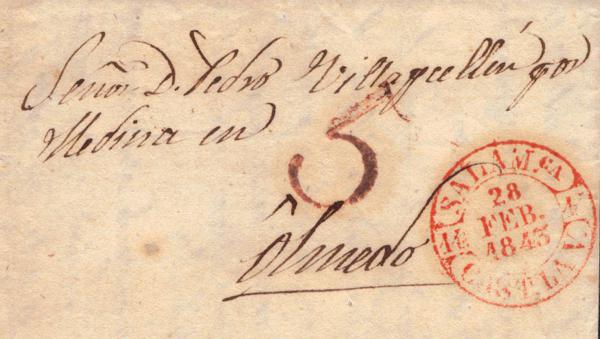 Señor D. Pedro Villapecellin por
Medina en
5
Olmedo
SALAM.CA
28
FEB.
1843
CAST. LA V.